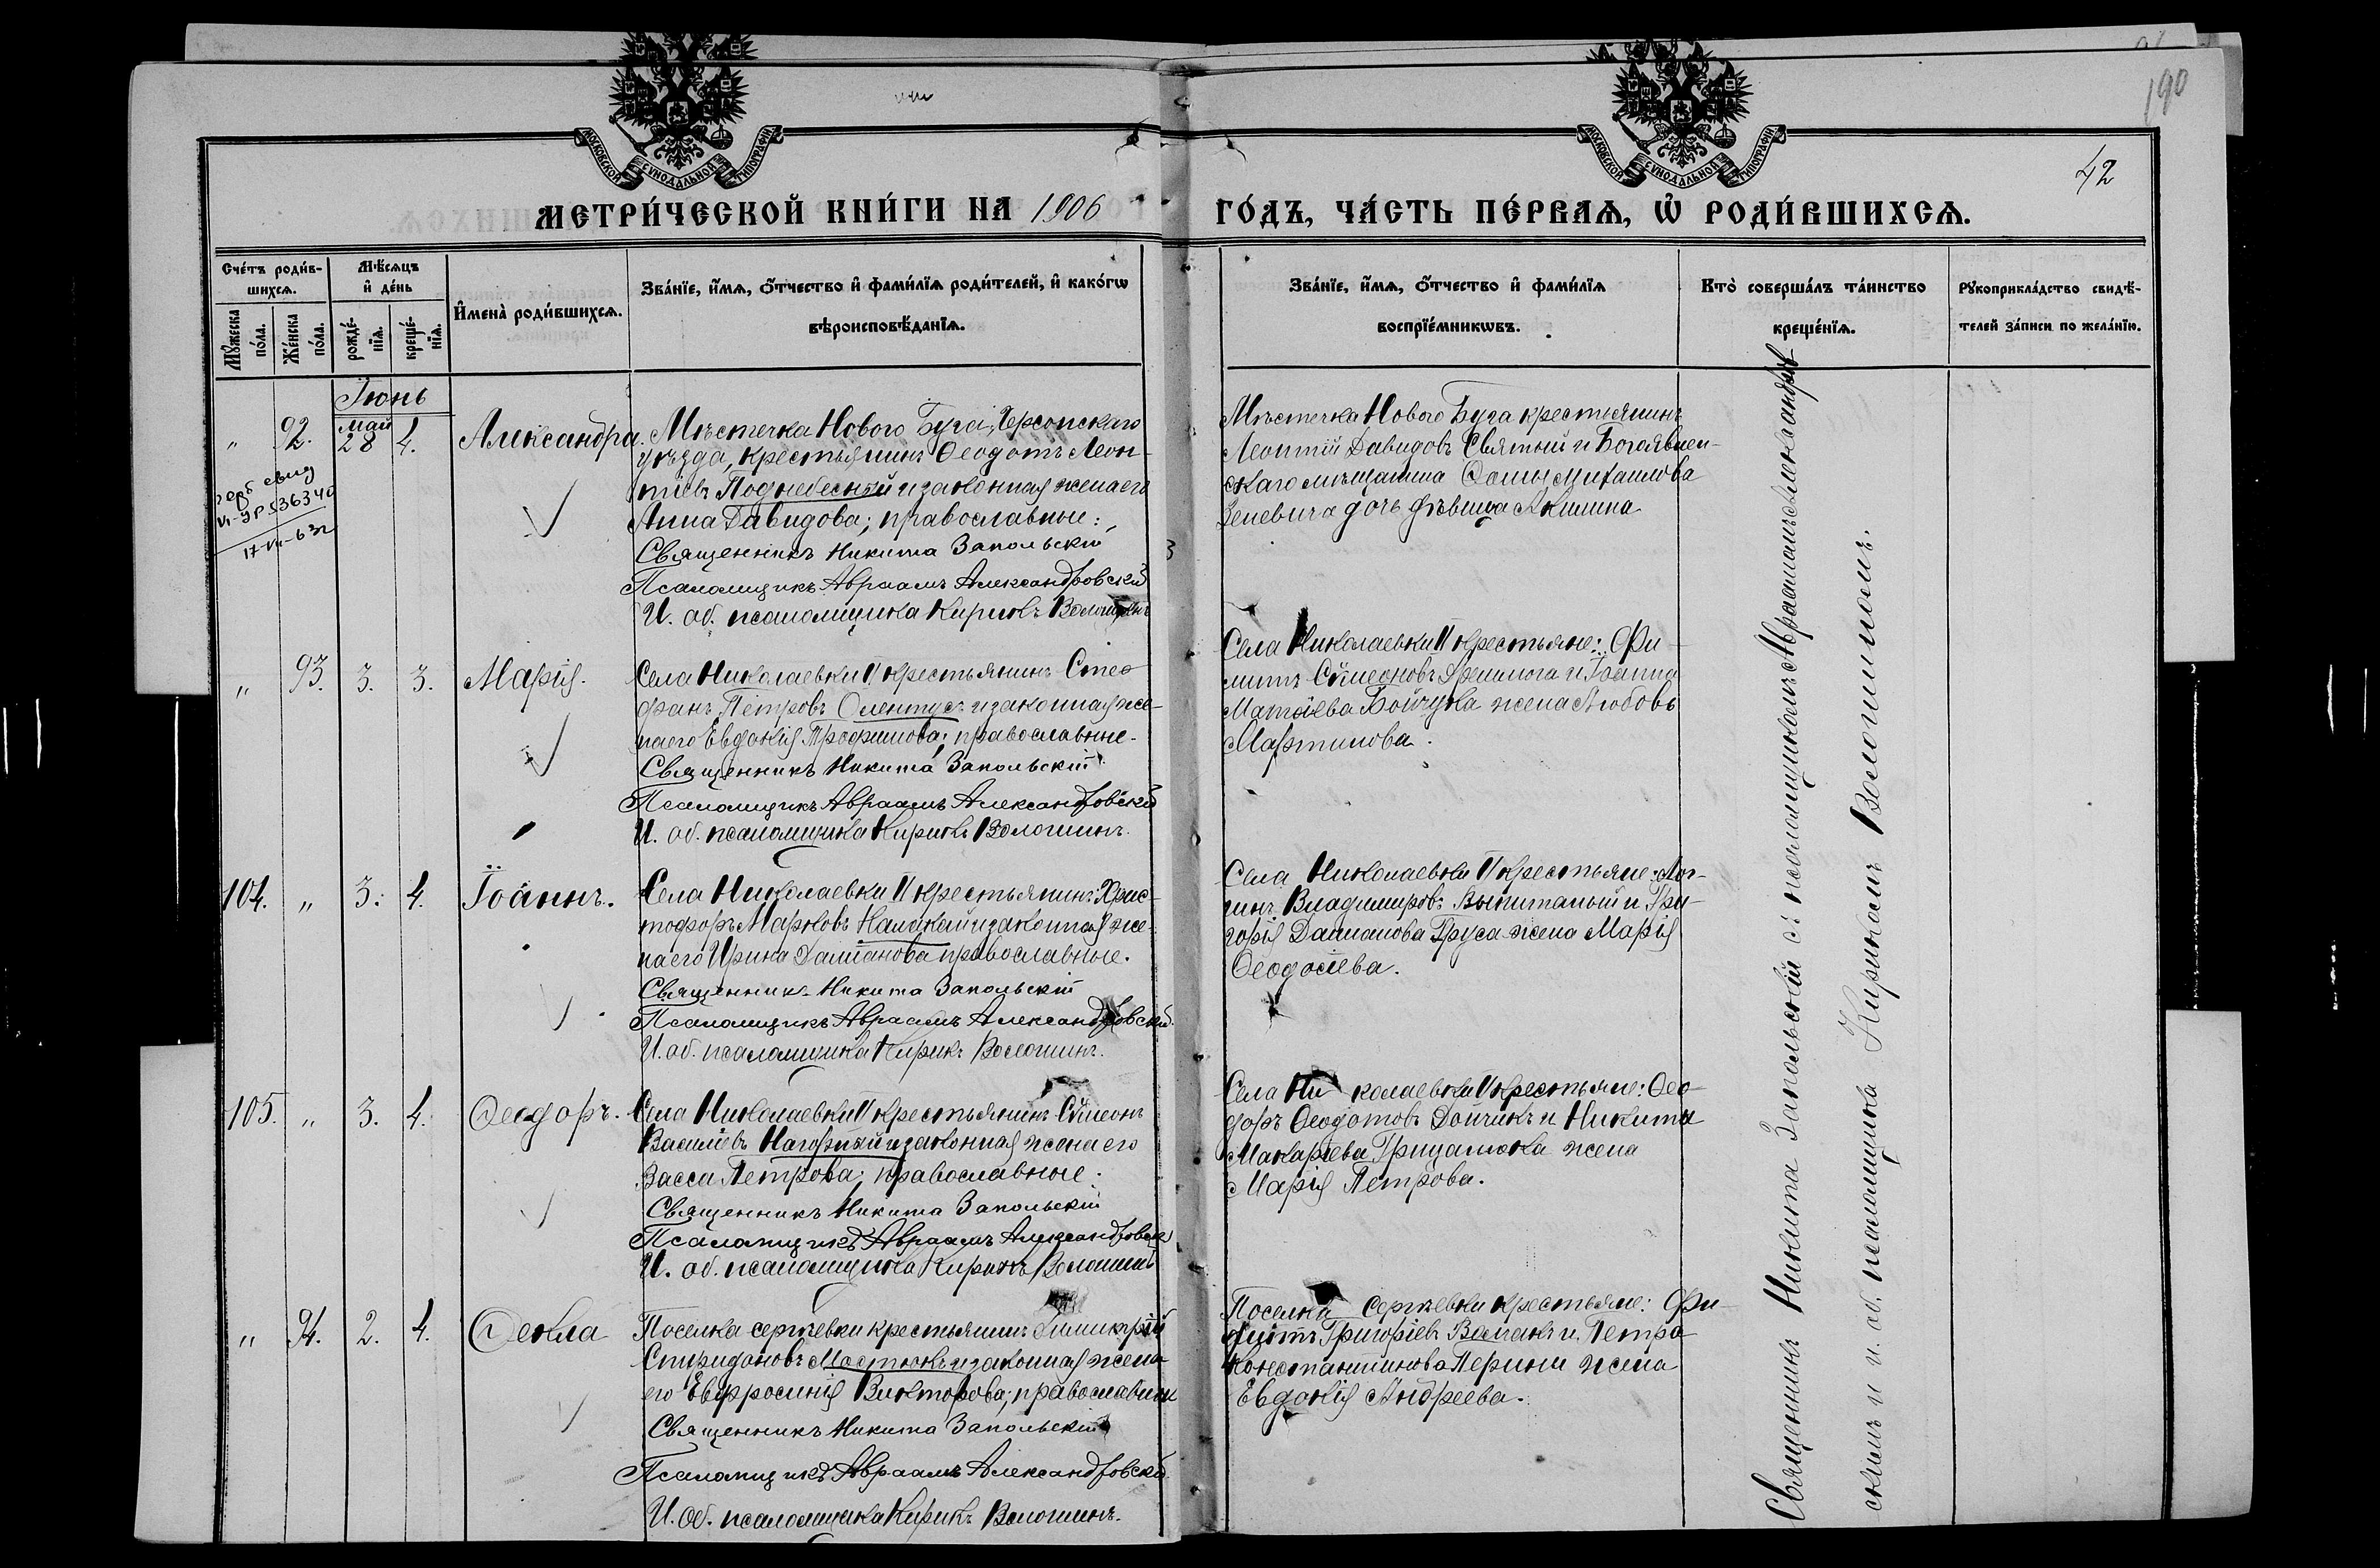 190
42
МОСКОВСКОЙ СѴНОДАЛЬНОЙ ТИПОГРАФІИ
МОСКОВСКОЙ СѴНОДАЛЬНОЙ ТИПОГРАФІИ
МЕТРИ́ЧЕСКОЙ КНИ́ГИ НА 1906
ГО́ДЪ, ЧА́СТЬ ПЕ́РВАѦ, Ѡ҆ РОДИ́ВШИХСѦ.
Сче́тъ роди́в-
шихсѧ.
Мꙋ́жеска по́ла.
Же́нска по́ла.
Мѣ́сѧцъ и҆ де́нь
рожде́-нїѧ.
креще́-нїѧ.
И҆мена̀ роди́вшихсѧ.
Зва́нїе, и҆́мѧ, ѻ҆́тчество и҆ фами́лїѧ роди́телей, и҆ како́гѡ
вѣроисповѣ́данїѧ.
Зва́нїе, и҆́мѧ, ѻ҆́тчество и҆ фами́лїѧ
воспрїе́мникѡвъ.
Кто̀ соверша́лъ та́инство
креще́нїѧ.
Рꙋкоприкла́дство свидѣ́-
телей за́писи по жела́нїю.
Іюнь
" 92. май 28 4. Александра.
17-VII-63г
Мѣстечка Новаго Буга, Херсонскаго
уѣзда, крестьянинъ Ѳеодотъ Леон-
тіевъ Поднебесный и законная жена его
Анна Давидова; православные:
Священникъ Никита Запольскій
Псаломщикъ Авраамъ Александровскій
И. об. псаломщика Кирикъ Волошинъ
Мѣстечка Новаго Буга крестьянинъ
Леонтій Давидовъ Святый и Богоявлен-
скаго мѣщанина Ѳомы Михаилова
Зеневича дочь дѣвица Акилина
" 93. 3. 3. Марія.
Села Николаевки II крестьянинъ Сте-
фанъ Петровъ Олентусъ и законная же-
на его Евдокія Трофимова; православные.
Священникъ Никита Запольскій
Псаломщикъ Авраамъ Александровскій
И. об. псаломщика Кирикъ Волошинъ.
Села Николаевки II крестьяне: Фи-
липпъ Сѵмеоновъ и Іоанна
Матѳіева Бойчука жена Любовь
Мартинова.
104. " 3. 4. Іоаннъ.
Села Николаевки II крестьянинъ Хрис-
тофоръ Марковъ и законная же-
на его Ирина Даміанова православные.
Священникъ Никита Запольскій
Псаломщикъ Авраамъ Александровскій
И. об. псаломщика Кирикъ Волошинъ.
Села Николаевки II крестьяне: Лог-
гинъ Владиміровъ и Гри-
горія Даміанова Груса жена Марія
Ѳеодосіева.
105. " 3. 4. Ѳеодоръ.
Села Николаевки II крестьянинъ Сѵмеонъ
Василіевъ Нагорный и законная жена его
Васса Петрова; православные:
Священникъ Никита Запольскій
Псаломщикъ Авраамъ Александровскій
И. об. псаломщика Кирикъ Волошинъ
Села Николаевки II крестьяне: Ѳео-
доръ Ѳеодотовъ Дойчикъ и Никиты
Макаріева Грицалюка жена
Марія Петрова.
" 94. 2. 4. Ѳекла
Поселка Сергѣевки крестьянинъ Димитрій
Спиридоновъ Мастюкъ и законная жена
его Евфросинія Викторова; православные
Священникъ Никита Запольскій
Псаломщикъ Авраамъ Александровскій
И. об. псаломщика Кирикъ Волошинъ.
Поселка Сергѣевки крестьяне: Фи-
липпъ Григоріевъ и Петра
Константинова жена
Евдокія Андреева.
Священникъ Никита Запольскій съ псаломщикомъ Авраамомъ Александров-
скимъ и и. об. псаломщика Кирикомъ Волошинымъ.